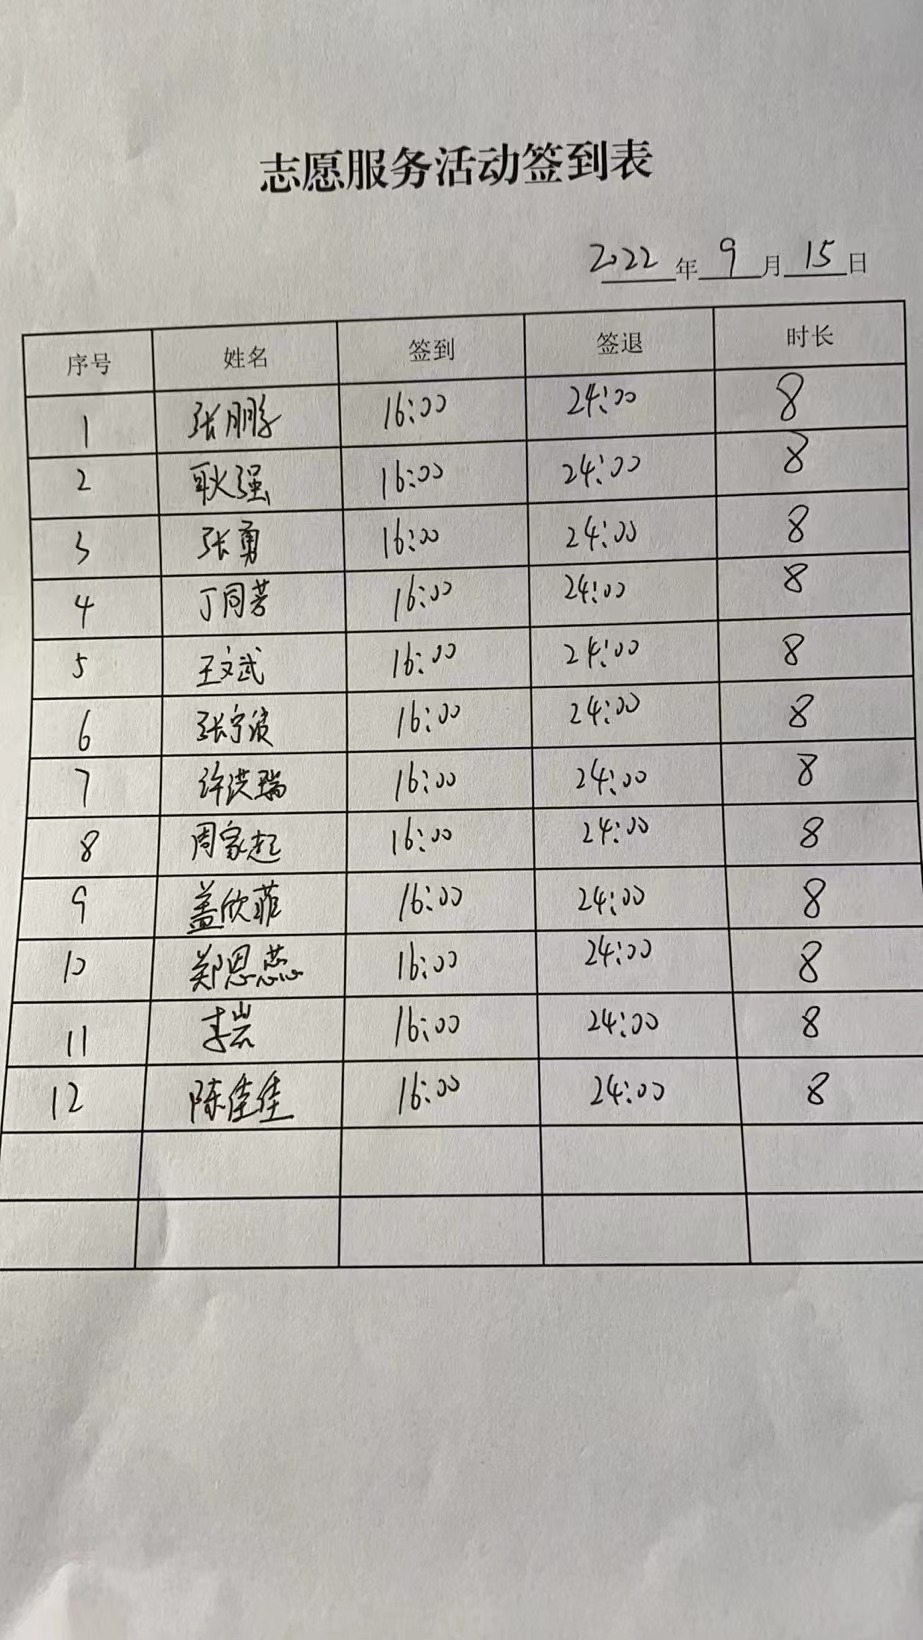 志愿服务活动签到表
2022年9月15日
序号 姓名 签到 签退 时长
1 张鹏 16:00 24:00 8
2 耿强 16:00 24:00 8
3 张勇 16:00 24:00 8
4 丁同芳 16:00 24:00 8
5 王文武 16:00 24:00 8
6 张宁波 16:00 24:00 8
7 许洪瑞 16:00 24:00 8
8 周家起 16:00 24:00 8
9 盖欣菲 16:00 24:00 8
10 郑恩蕊 16:00 24:00 8
11 李岩 16:00 24:00 8
12 陈佳佳 16:00 24:00 8